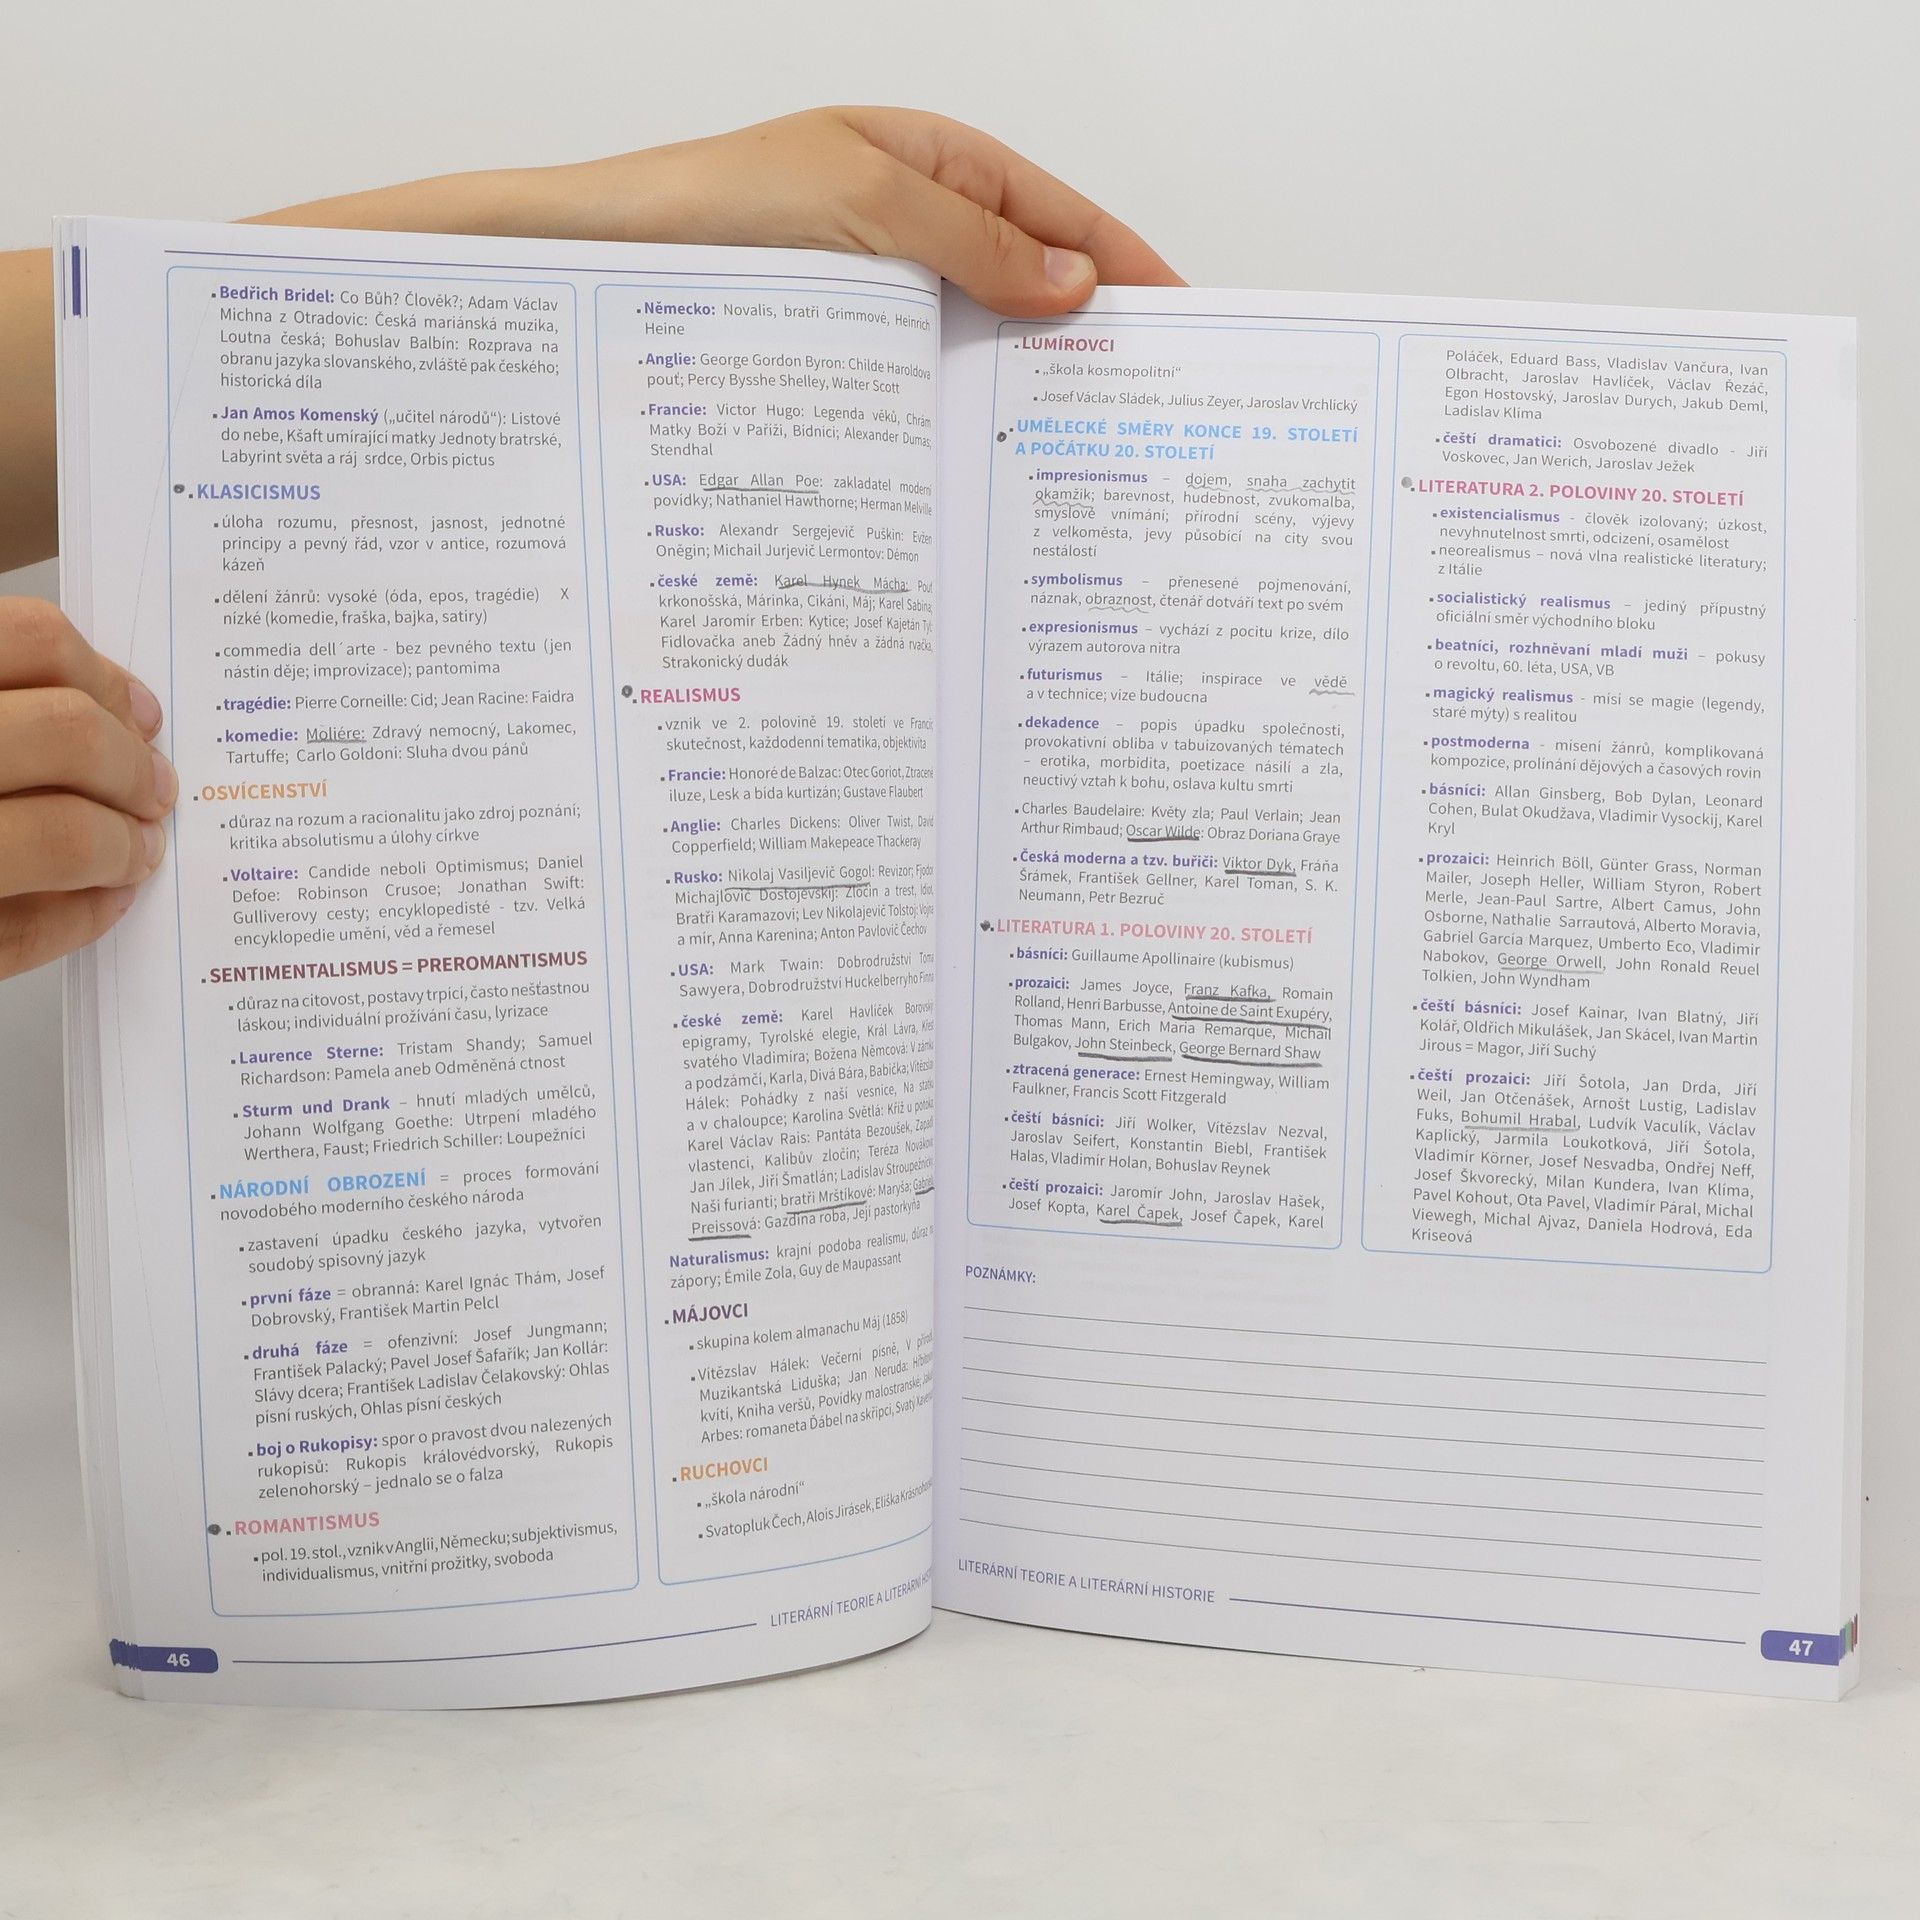 Bedřich Bridel: Co Bůh? Člověk?; Adam Václav
Michna z Otradovic: Česká mariánská muzika,
Loutna česká; Bohuslav Balbín: Rozprava na
obranu jazyka slovanského, zvláště pak českého;
historická díla
Jan Amos Komenský („učitel národů“): Listové
do nebe, Kšaft umírající matky Jednoty bratrské,
Labyrint světa a ráj srdce, Orbis pictus
KLASICISMUS
úloha rozumu, přesnost, jasnost, jednotné
principy a pevný řád, vzor v antice, rozumová
kázeň
dělení žánrů: vysoké (óda, epos, tragédie) X
nízké (komedie, fraška, bajka, satiry)
commedia dell´arte - bez pevného textu (jen
nástin děje; improvizace); pantomima
tragédie: Pierre Corneille: Cid; Jean Racine: Faidra
komedie: Moliére: Zdravý nemocný, Lakomec,
Tartuffe; Carlo Goldoni: Sluha dvou pánů
OSVÍCENSTVÍ
důraz na rozum a racionalitu jako zdroj poznání;
kritika absolutismu a úlohy církve
Voltaire: Candide neboli Optimismus; Daniel
Defoe: Robinson Crusoe; Jonathan Swift:
Gulliverovy cesty; encyklopedisté - tzv. Velká
encyklopedie umění, věd a řemesel
SENTIMENTALISMUS = PREROMANTISMUS
důraz na citovost, postavy trpící, často nešťastnou
láskou; individuální prožívání času, lyrizace
Laurence Sterne: Tristam Shandy; Samuel
Richardson: Pamela aneb Odměněná ctnost
Sturm und Drank – hnutí mladých umělců,
Johann Wolfgang Goethe: Utrpení mladého
Werthera, Faust; Friedrich Schiller: Loupežníci
NÁRODNÍ OBROZENÍ = proces formování
novodobého moderního českého národa
zastavení úpadku českého jazyka, vytvořen
soudobý spisovný jazyk
první fáze = obranná: Karel Ignác Thám, Josef
Dobrovský, František Martin Pelcl
druhá fáze = ofenzivní: Josef Jungmann;
František Palacký; Pavel Josef Šafařík; Jan Kollár:
Slávy dcera; František Ladislav Čelakovský: Ohlas
písní ruských, Ohlas písní českých
boj o Rukopisy: spor o pravost dvou nalezených
rukopisů: Rukopis královédvorský, Rukopis
zelenohorský – jednalo se o falza
ROMANTISMUS
pol. 19. stol., vznik v Anglii, Německu; subjektivismus,
individualismus, vnitřní prožitky, svoboda
Německo: Novalis, bratři Grimmové, Heinrich
Heine
Anglie: George Gordon Byron: Childe Haroldova
pouť; Percy Bysshe Shelley, Walter Scott
Francie: Victor Hugo: Legenda věků, Chrám
Matky Boží v Paříži, Bídníci; Alexander Dumas;
Stendhal
USA: Edgar Allan Poe: zakladatel moderní
povídky; Nathaniel Hawthorne; Herman Melville
Rusko: Alexandr Sergejevič Puškin: Evžen
Oněgin; Michail Jurjevič Lermontov: Démon
české země: Karel Hynek Mácha: Pouť
krkonošská, Márinka, Cikáni, Máj; Karel Sabina;
Karel Jaromír Erben: Kytice; Josef Kajetán Tyl:
Fidlovačka aneb Žádný hněv a žádná rvačka,
Strakonický dudák
REALISMUS
vznik ve 2. polovině 19. století ve Francii;
skutečnost, každodenní tematika, objektivita
Francie: Honoré de Balzac: Otec Goriot, Ztracené
iluze, Lesk a bída kurtizán; Gustave Flaubert
Anglie: Charles Dickens: Oliver Twist, David
Copperfield; William Makepeace Thackeray
Rusko: Nikolaj Vasiljevič Gogol: Revizor; Fjodor
Michajlovič Dostojevskij: Zločin a trest, Idiot,
Bratři Karamazovi; Lev Nikolajevič Tolstoj: Vojna
a mír, Anna Karenina; Anton Pavlovič Čechov
USA: Mark Twain: Dobrodružství Toma
Sawyera, Dobrodružství Huckelberryho Finna
české země: Karel Havlíček Borovský:
epigramy, Tyrolské elegie, Král Lávra, Křest
svatého Vladimíra; Božena Němcová: V zámku
a podzámčí, Karla, Divá Bára, Babička; Vítězslav
Hálek: Pohádky z naší vesnice, Na statku
a v chaloupce; Karolina Světlá: Kříž u potoka;
Karel Václav Rais: Pantáta Bezoušek, Zapadlí
vlastenci, Kalibův zločin; Teréza Nováková:
Jan Jílek, Jiří Šmatlán; Ladislav Stroupežnický:
Naši furianti; bratři Mrštíkové: Maryša; Gabriela
Preissová: Gazdina roba, Její pastorkyňa
Naturalismus: krajní podoba realismu, důraz na
zápory; Émile Zola, Guy de Maupassant
MÁJOVCI
skupina kolem almanachu Máj (1858)
Vítězslav Hálek: Večerní písně, V přírodě,
Muzikantská Liduška; Jan Neruda: Hřbitovní
kvítí, Kniha veršů, Povídky malostranské; Jakub
Arbes: romaneta Ďábel na skřipci, Svatý Xaverius
RUCHOVCI
„škola národní“
Svatopluk Čech, Alois Jirásek, Eliška Krásnohorská
LITERÁRNÍ TEORIE A LITERÁRNÍ
46
LUMÍROVCI
„škola kosmopolitní“
Josef Václav Sládek, Julius Zeyer, Jaroslav Vrchlický
UMĚLECKÉ SMĚRY KONCE 19. STOLETÍ
A POČÁTKU 20. STOLETÍ
impresionismus – dojem, snaha zachytit
okamžik; barevnost, hudebnost, zvukomalba,
smyslové vnímání; přírodní scény, výjevy
z velkoměsta, jevy působící na city svou
nestálostí
symbolismus – přenesené pojmenování,
náznak, obraznost, čtenář dotváří text po svém
expresionismus – vychází z pocitu krize, dílo
výrazem autorova nitra
futurismus – Itálie; inspirace ve vědě
a v technice; vize budoucna
dekadence – popis úpadku společnosti,
provokativní obliba v tabuizovaných tématech
– erotika, morbidita, poetizace násilí a zla,
neuctivý vztah k bohu, oslava kultu smrti
Charles Baudelaire: Květy zla; Paul Verlain; Jean
Arthur Rimbaud; Oscar Wilde: Obraz Doriana Graye
Česká moderna a tzv. buřiči: Viktor Dyk, Fráňa
Šrámek, František Gellner, Karel Toman, S. K.
Neumann, Petr Bezruč
LITERATURA 1. POLOVINY 20. STOLETÍ
básníci: Guillaume Apollinaire (kubismus)
prozaici: James Joyce, Franz Kafka, Romain
Rolland, Henri Barbusse, Antoine de Saint Exupéry,
Thomas Mann, Erich Maria Remarque, Michail
Bulgakov, John Steinbeck, George Bernard Shaw
ztracená generace: Ernest Hemingway, William
Faulkner, Francis Scott Fitzgerald
čeští básníci: Jiří Wolker, Vítězslav Nezval,
Jaroslav Seifert, Konstantin Biebl, František
Halas, Vladimír Holan, Bohuslav Reynek
čeští prozaici: Jaromír John, Jaroslav Hašek,
Josef Kopta, Karel Čapek, Josef Čapek, Karel
Poláček, Eduard Bass, Vladislav Vančura, Ivan
Olbracht, Jaroslav Havlíček, Václav Řezáč,
Egon Hostovský, Jaroslav Durych, Jakub Deml,
Ladislav Klíma
čeští dramatici: Osvobozené divadlo - Jiří
Voskovec, Jan Werich, Jaroslav Ježek
LITERATURA 2. POLOVINY 20. STOLETÍ
existencialismus - člověk izolovaný; úzkost,
nevyhnutelnost smrti, odcizení, osamělost
neorealismus – nová vlna realistické literatury;
z Itálie
socialistický realismus – jediný přípustný
oficiální směr východního bloku
beatníci, rozhněvaní mladí muži – pokusy
o revoltu, 60. léta, USA, VB
magický realismus - mísí se magie (legendy,
staré mýty) s realitou
postmoderna - mísení žánrů, komplikovaná
kompozice, prolínání dějových a časových rovin
básníci: Allan Ginsberg, Bob Dylan, Leonard
Cohen, Bulat Okudžava, Vladimir Vysockij, Karel
Kryl
prozaici: Heinrich Böll, Günter Grass, Norman
Mailer, Joseph Heller, William Styron, Robert
Merle, Jean-Paul Sartre, Albert Camus, John
Osborne, Nathalie Sarrautová, Alberto Moravia,
Gabriel García Marquez, Umberto Eco, Vladimir
Nabokov, George Orwell, John Ronald Reuel
Tolkien, John Wyndham
čeští básníci: Josef Kainar, Ivan Blatný, Jiří
Kolář, Oldřich Mikulášek, Jan Skácel, Ivan Martin
Jirous = Magor, Jiří Suchý
čeští prozaici: Jiří Šotola, Jan Drda, Jiří
Weil, Jan Otčenášek, Arnošt Lustig, Ladislav
Fuks, Bohumil Hrabal, Ludvík Vaculík, Václav
Kaplický, Jarmila Loukotková, Jiří Šotola,
Vladimír Körner, Josef Nesvadba, Ondřej Neff,
Josef Škvorecký, Milan Kundera, Ivan Klíma,
Pavel Kohout, Ota Pavel, Vladimír Páral, Michal
Viewegh, Michal Ajvaz, Daniela Hodrová, Eda
Kriseová
POZNÁMKY:
LITERÁRNÍ TEORIE A LITERÁRNÍ HISTORIE
47